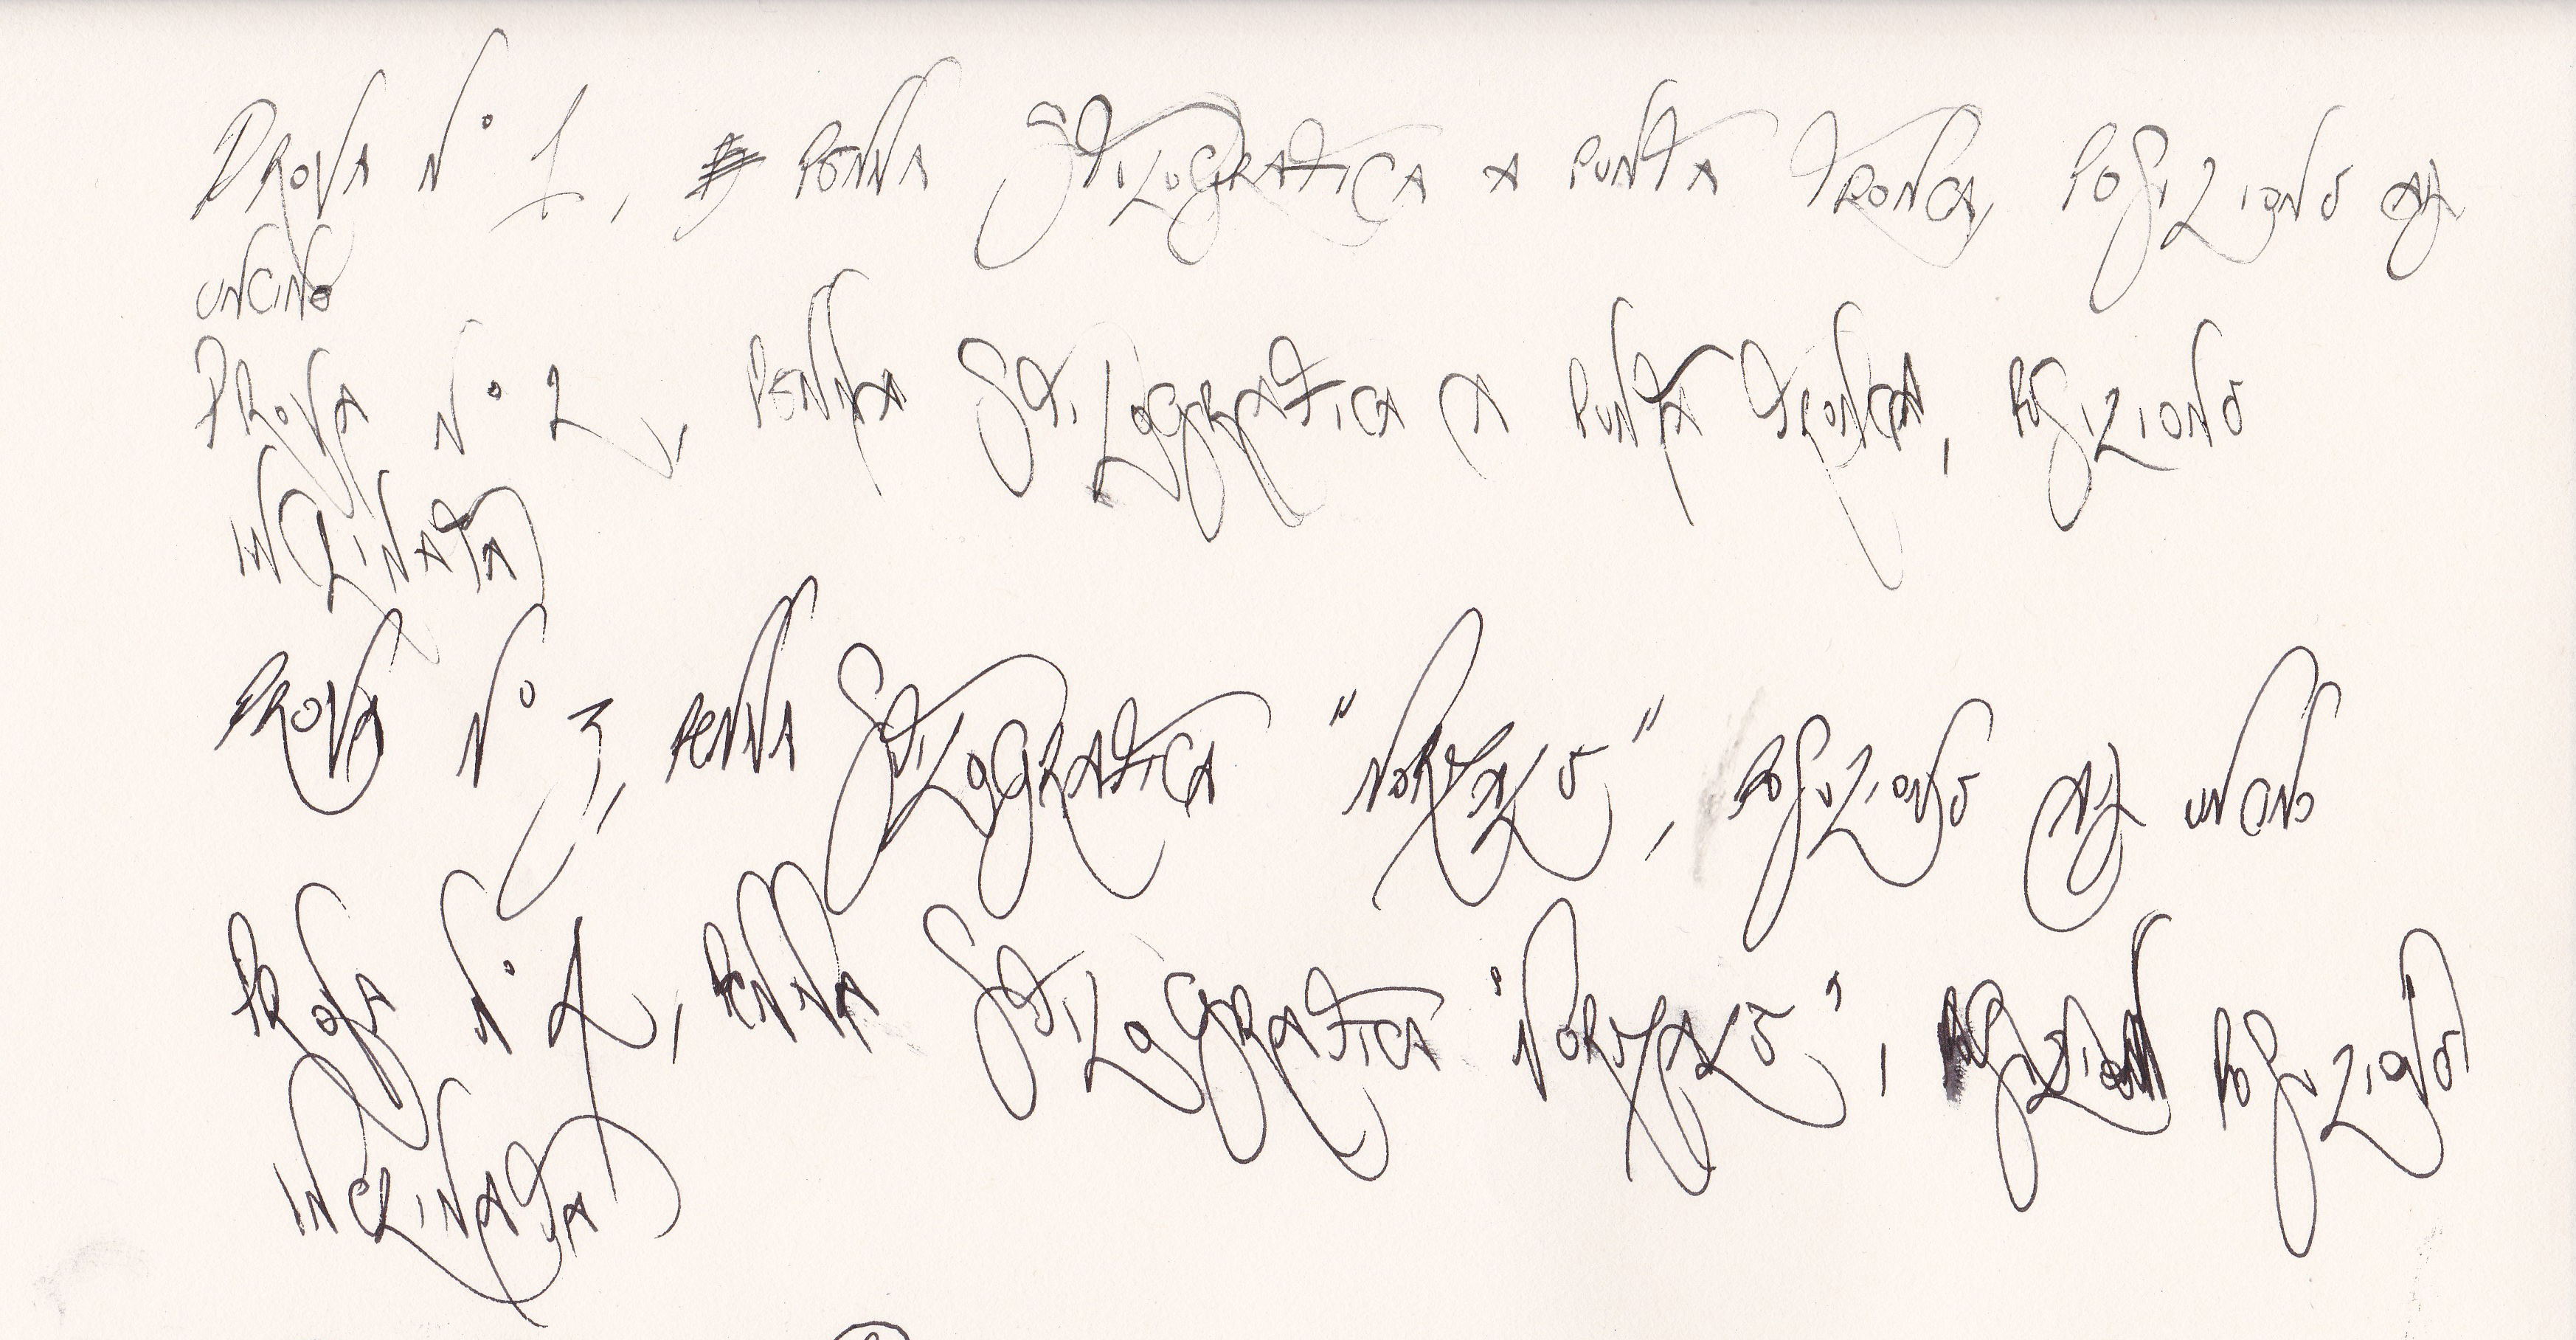 PROVA N° 1, PENNA STILOGRAFICA A PUNTA TRONCA, POSIZIONE AD
UNCINO
PROVA N° 2, PENNA STILOGRAFICA A PUNTA TRONCA, POSIZIONE
INCLINATA
PROVA N° 3, PENNA STILOGRAFICA "NORMALE", POSIZIONE AD UNCINO
PROVA N° 4, PENNA STILOGRAFICA "NORMALE", POSIZIONE
INCLINATA